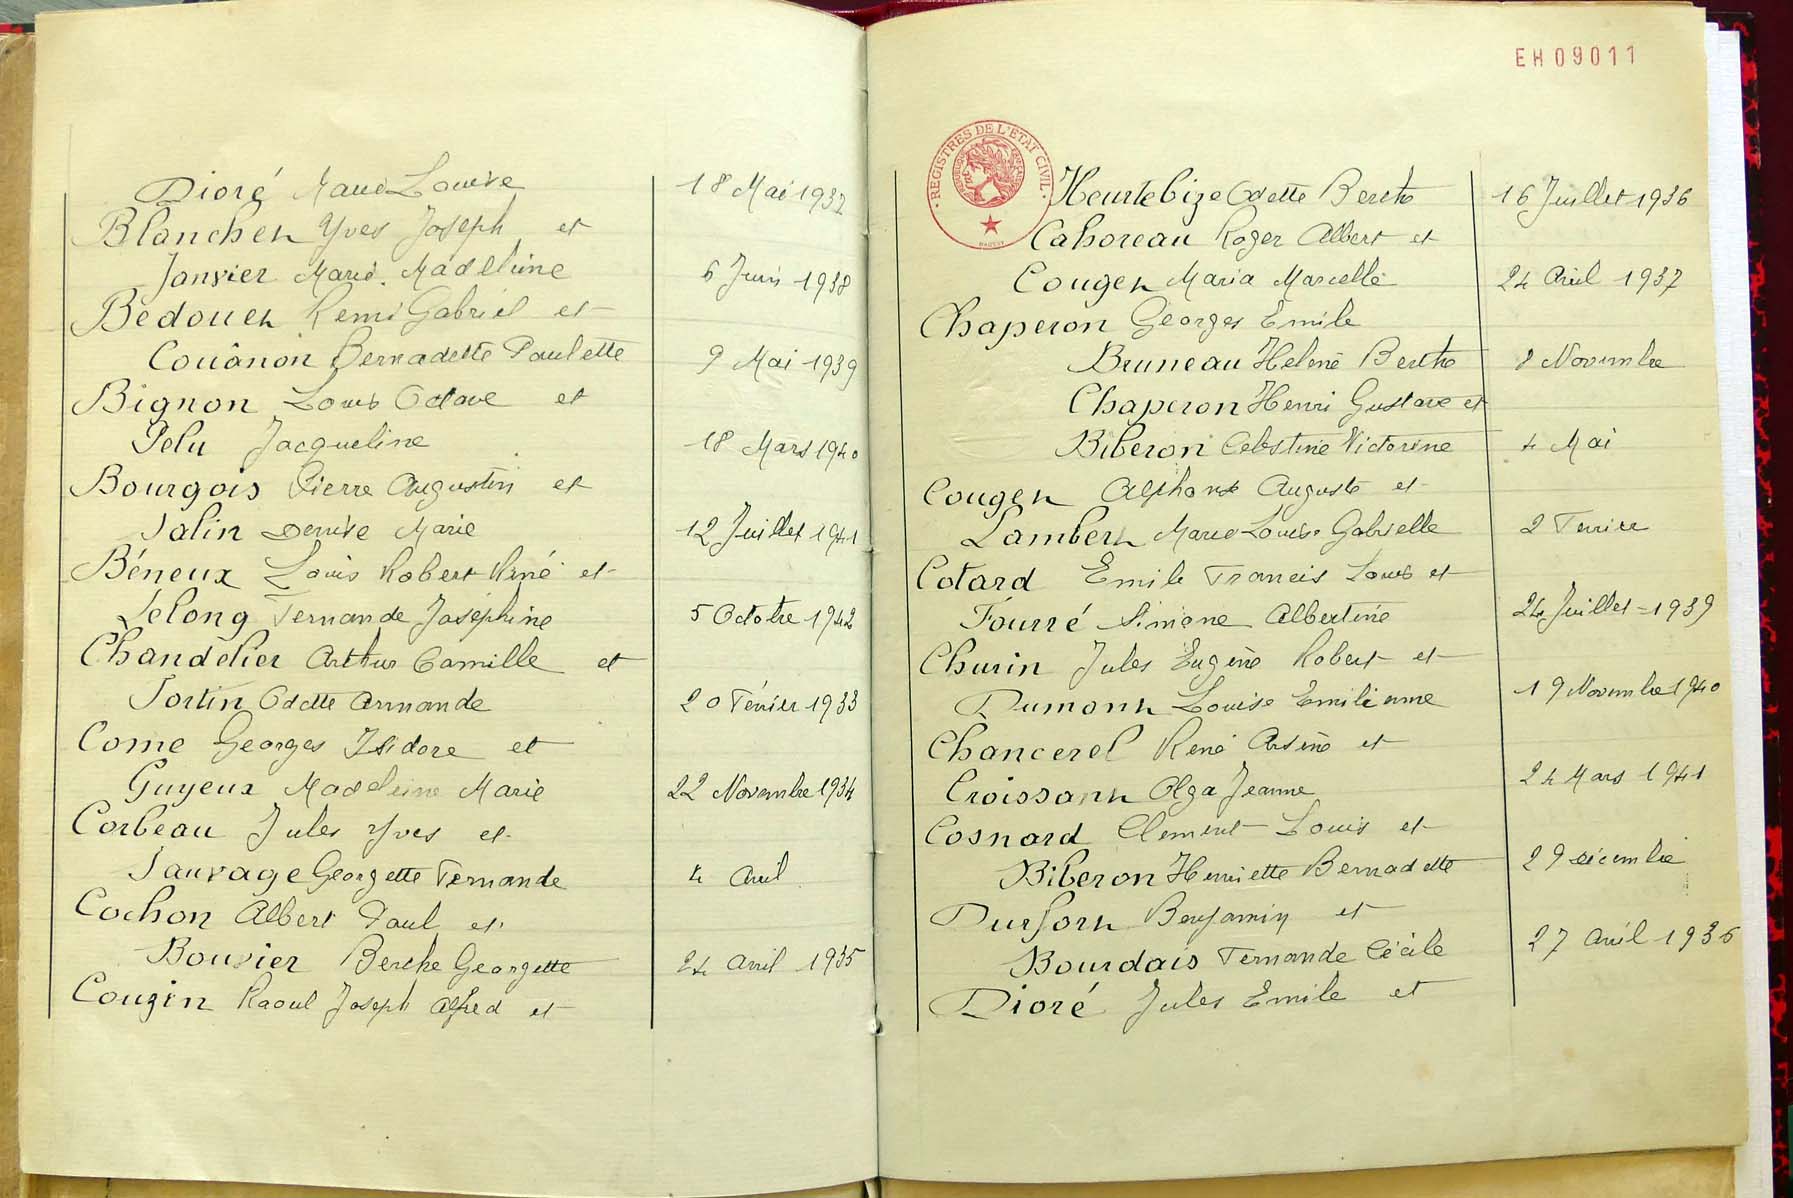 Dioré Marie Louise 18 Mai 1937
Blancher Yves Joseph et
Janvier Marie Madeleine 6 Juin 1938
Bedouet Remi Gabriel et
Couânon Bernadette Paulette 9 Mai 1939
Bignon Louis Octave et
Pelu Jacqueline 18 Mars 1940
Bourgois Pierre Augustin et
Salin Denise Marie 12 Juillet 1941
Béneux Louis Robert René et
Lelong Fernande Joséphine 5 Octobre 1942
Chandelier Arthur Camille et
Fortin Odette Armande 20 Février 1933
Come Georges Isidore et
Guyeux Madeleine Marie 22 Novembre 1934
Corbeau Jules Yves et
Sauvage Georgette Fernande 4 Avril
Cochon Albert Paul et
Bouvier Berthe Georgette 24 Avril 1935
Cougin Raoul Joseph Alfred et
EH09011
REGISTRES DE L'ETAT CIVIL
Heurtebize Odette Berthe 16 Juillet 1936
Cahoreau Roger Albert et
Couget Maria Marcelle 24 Avril 1937
Chaperon Georges Emile
Bruneau Helene Berthe 8 Novembre
Chaperon Henri Gustave et
Biberon Celestine Victorine 4 Mai
Couget Alphonse Auguste et
Lambert Marie Louise Gabrielle 2 Fevrier
Cotard Emile Francis Louis et
Fourré Simone Albertine 24 Juillet 1939
Churin Jules Eugène Robert et
Dumont Louise Emilienne 19 Novembre 1940
Chancerel René Arsène et
Croissant Olga Jeanne 24 Mars 1941
Cosnard Clement Louis et
Biberon Henriette Bernadette 29 Décembre
Durfort Benjamin et
Bourdais Fernande Cécile 27 Avril 1936
Dioré Jules Emile et